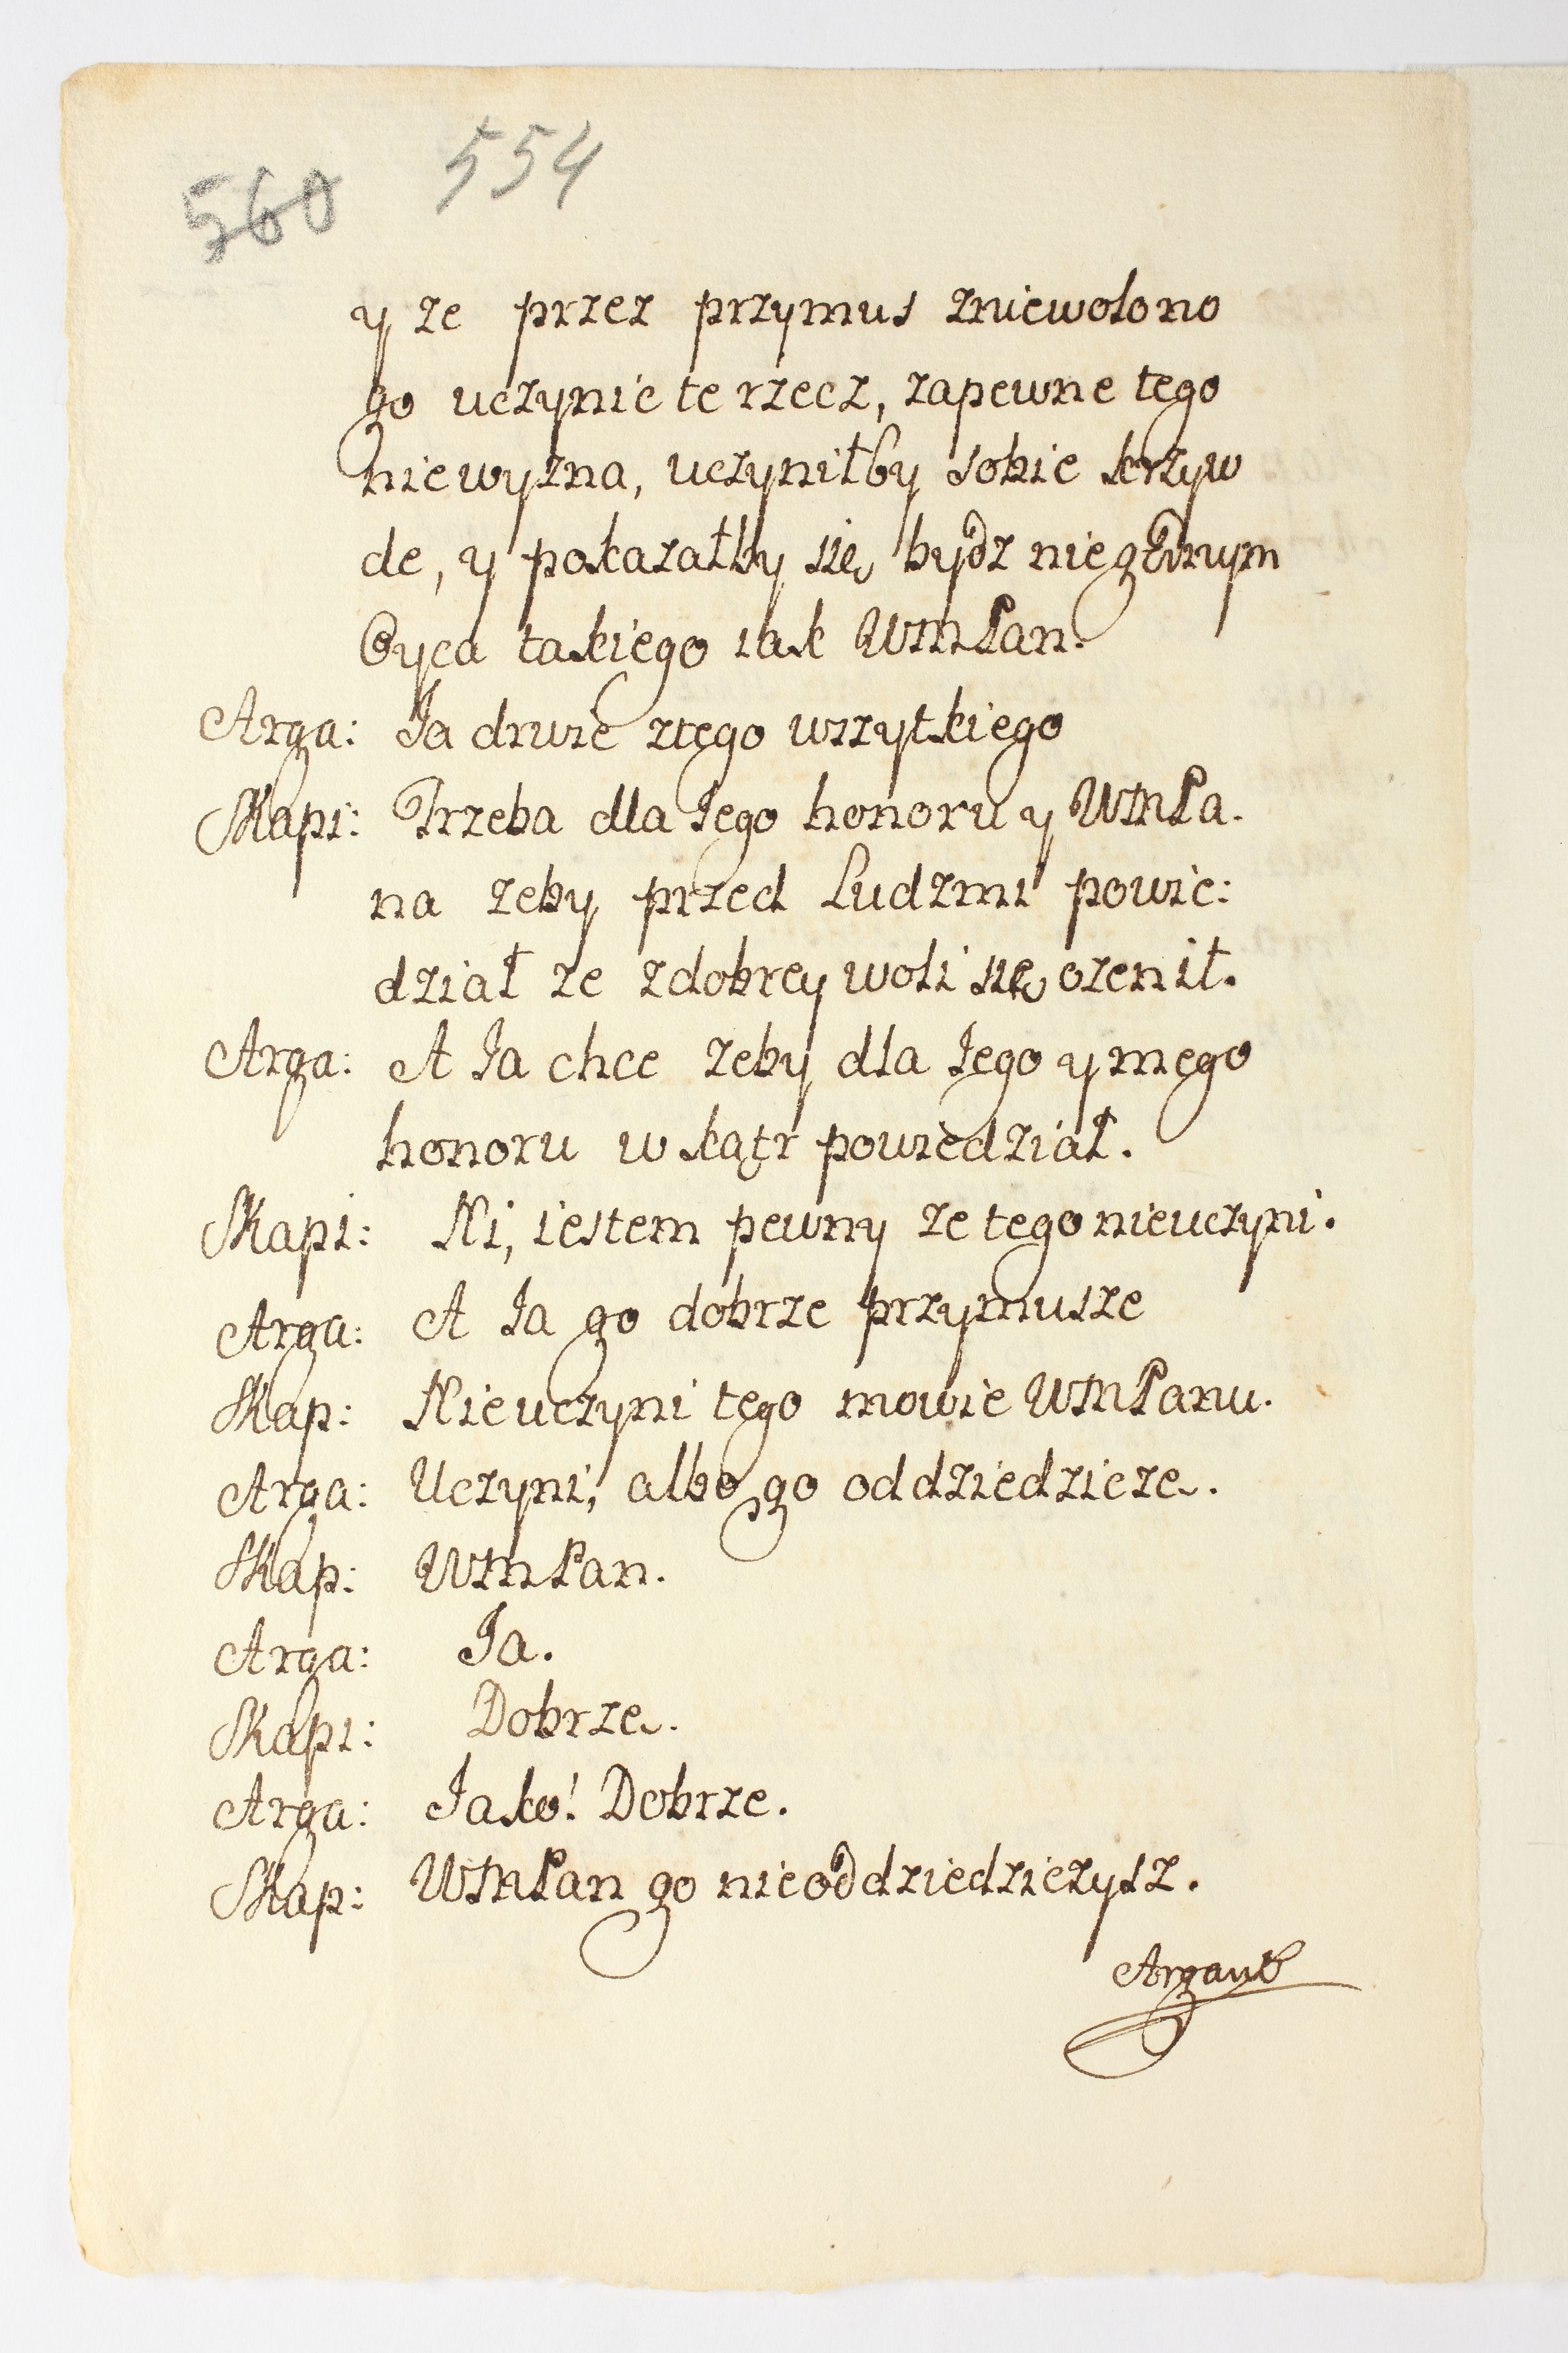 560 554
y ze przez przymus zniewolono
go uczynic te rzecz, zapewne tego
nie wyzna, uczyniłby sobie krzyw
de, y pokazałby się bydz niegodnym
Oyca takiego iak WMPan.
Arga: Ja drwie ztego wszytkiego
Skapi: Trzeba dla Jego honoru y WMPa.
na zeby przed Ludzmi powie:
dział ze zdobrey woli się ozenił.
Arga: A Ja chce zeby dla Jego y mego
honoru w kątr powiedział.
Skapi: Ni, iestem pewny ze tego nieuczyni.
Arga: A Ja go dobrze przymusze
Skap: Nie uczyni tego mowie WMPanu.
Arga: Uczyni, albo go oddziedzicze.
Skap: WMPan.
Arga: Ja.
Skapi: Dobrze.
Arga: Jako! Dobrze.
Skap: WMPan go nieoddziedziczysz.
Argant